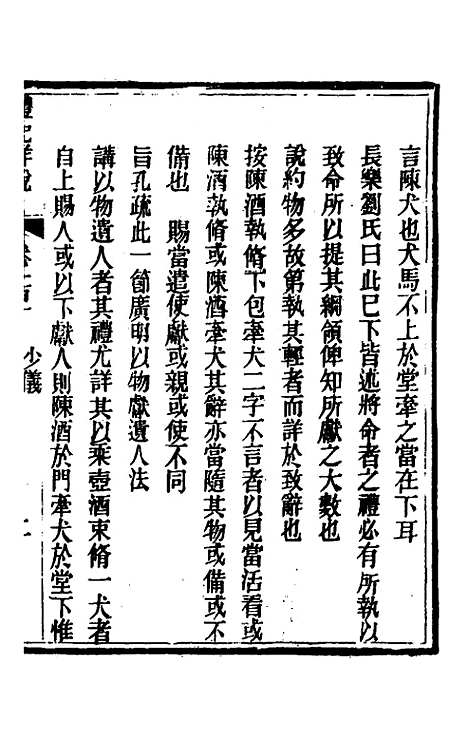 言陳犬也犬馬不上於堂牽之當在下耳
長樂劉氏曰此已下皆述將命者之禮必有所執以
致命所以提其綱領俾知所獻之大數也
說約物多故第執其輕者而詳於致辭也
按陳酒執脩下包牽犬二字不言者以見當活看或
陳酒執脩或陳酒牽犬其辭亦當隨其物或備或不
備也　賜當遣使獻或親或使不同
旨孔疏此一節廣明以物獻遺人法
講以物遺人者其禮尤詳其以乘壺酒束脩一犬者
自上賜人或以下獻人則陳酒於門牽犬於堂下惟
禮記詳說
少儀